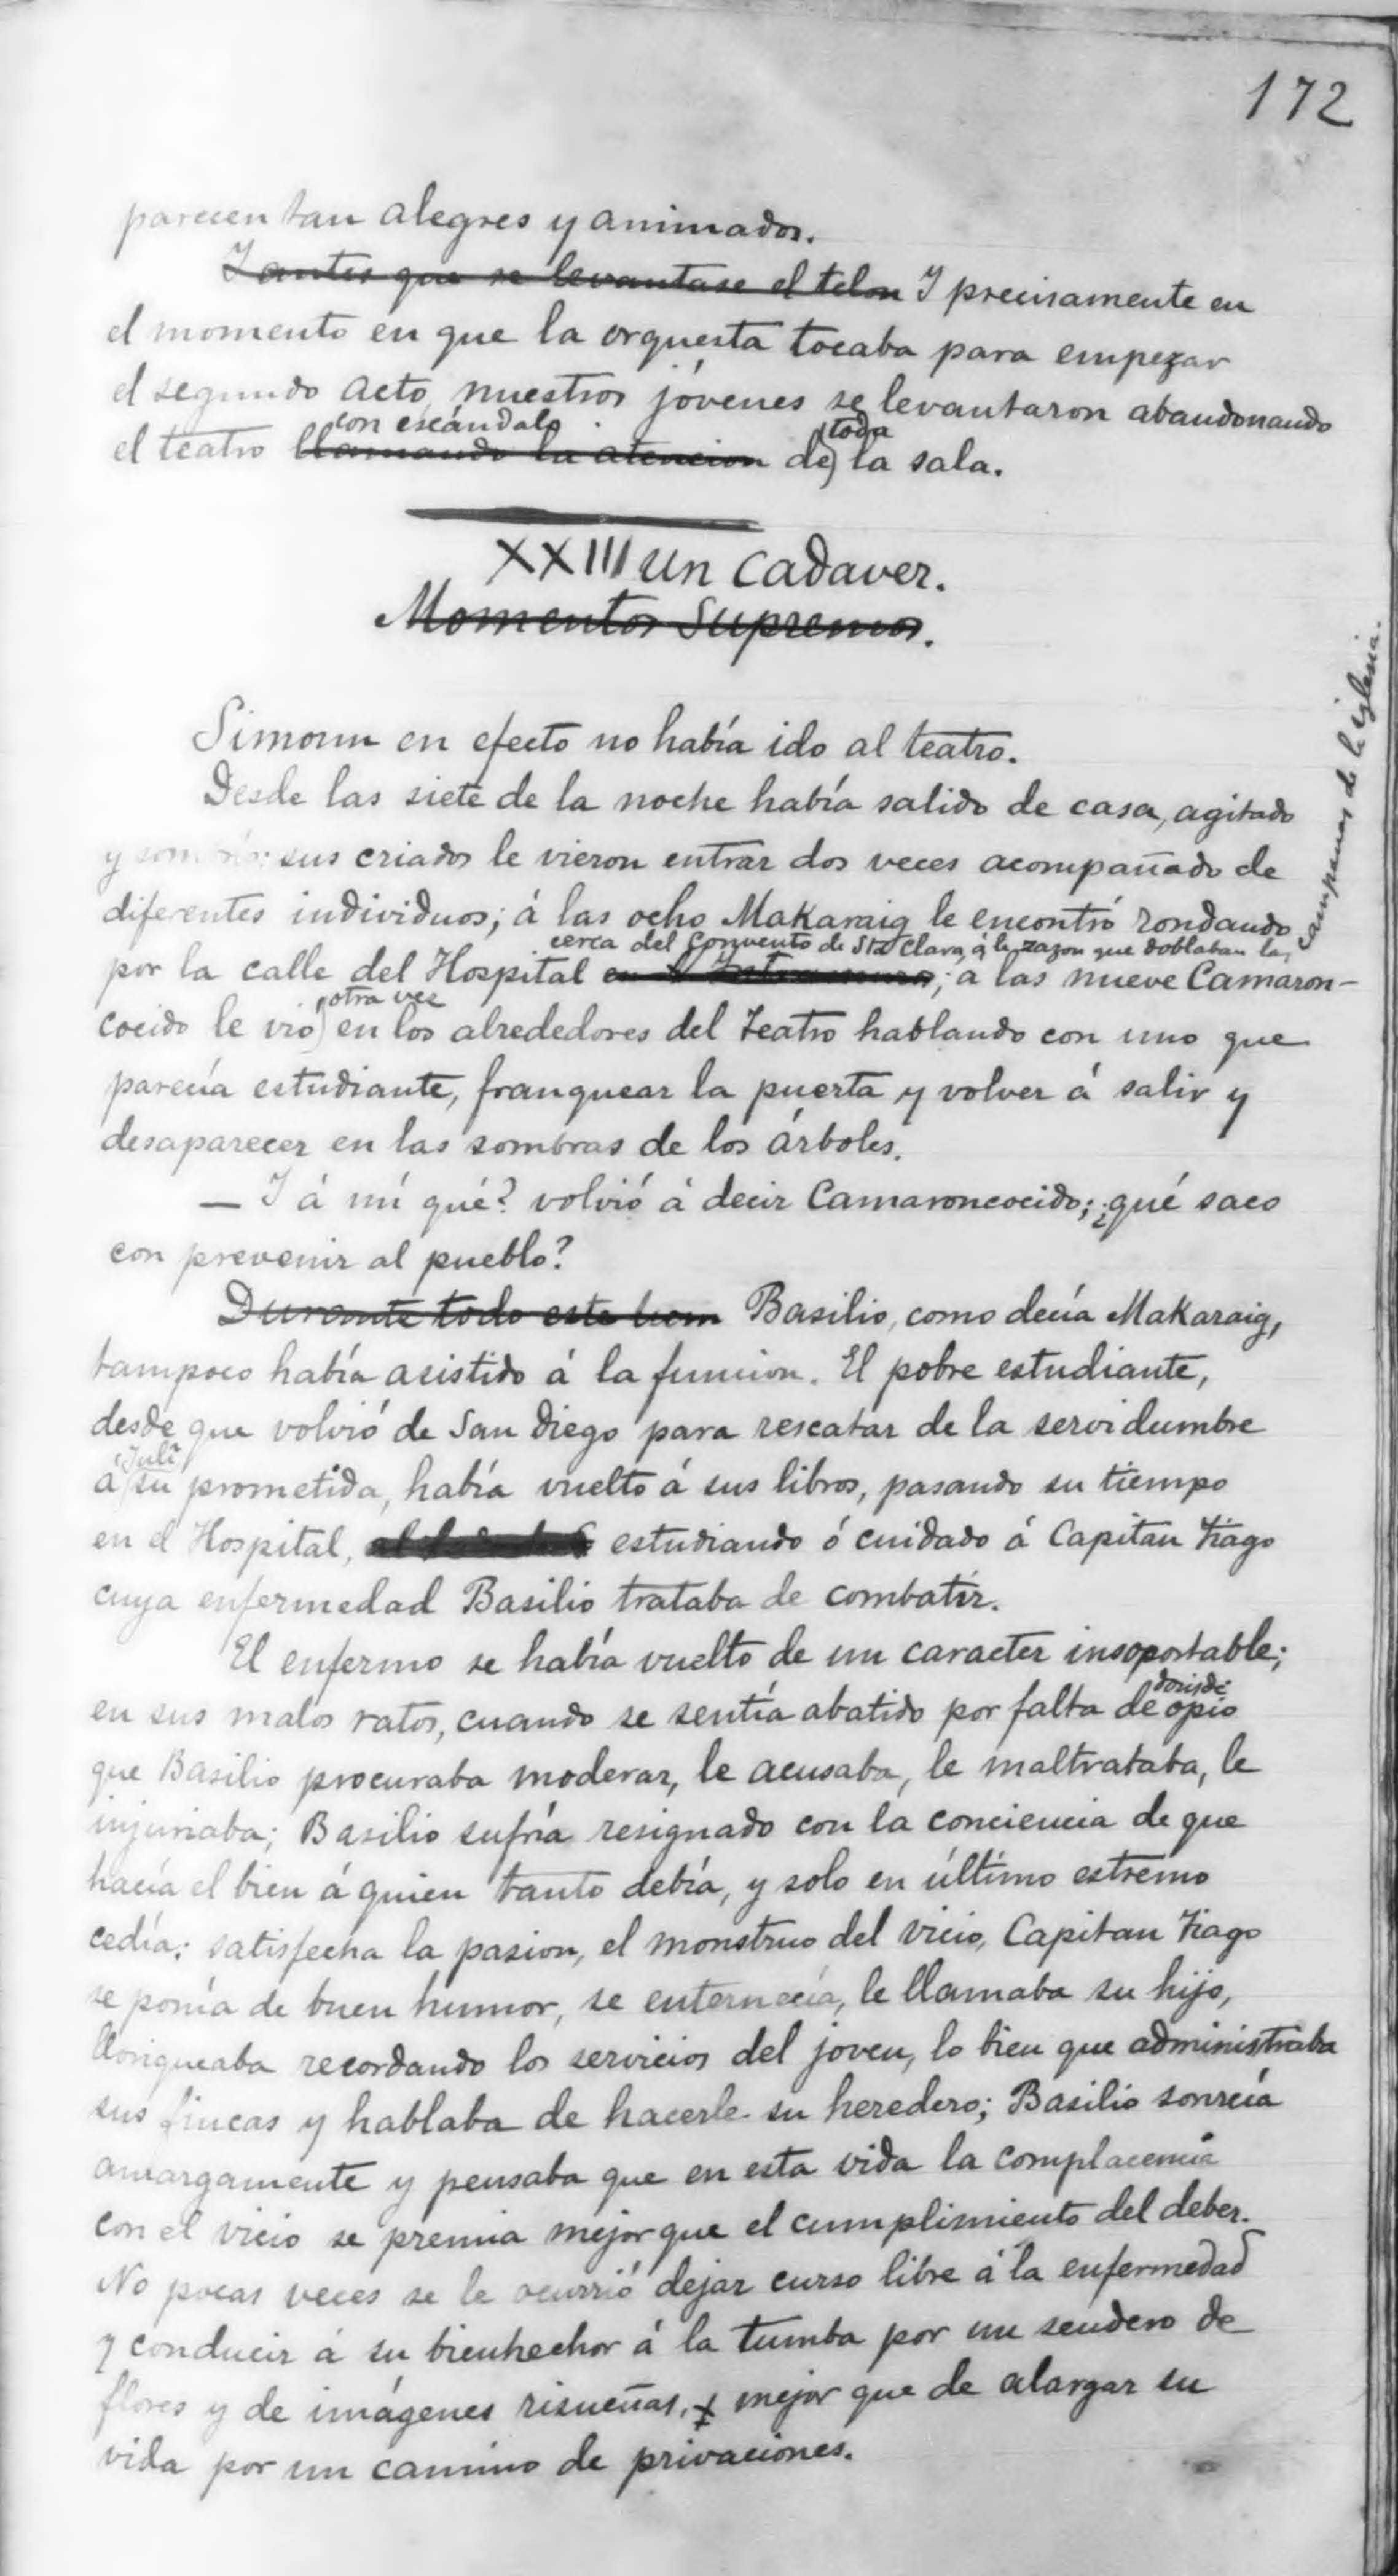 172
parecen tan alegres y animados.
Y antes que se levantase el telon Y precisamente en
el momento en que la orquesta tocaba para empezar
el segundo acto, nuestros jóvenes se levantaron abandonando
con escándalo toda
el teatro llamando la atencion de la sala.
XXIII Un Cadaver.
Momentos Supremos.
Simoun en efecto no había ido al teatro.
Desde las siete de la noche había salido de casa, agitado
y sombrío: sus criados le vieron entrar dos veces acompañado de
diferentes individuos; á las ocho Makaraig le encontró rondando
cerca del Convento de Sta Clara, á la sazon que doblaban las
campanas de la iglesia.
por la calle del Hospital ; a las nueve Camaron-
otra vez
cocido le vió en los alrededores del Teatro hablando con uno que
parecía estudiante, franquear la puerta y volver á salir y
desaparecer en las sombras de los árboles.
— Y á mí qué? volvió á decir Camaroncocido; ¿qué saco
con prevenir al pueblo?
Durante todo este tiem Basilio, como decía Makaraig,
tampoco había asistido á la funcion. El pobre estudiante,
desde que volvió de San Diego para rescatar de la servidumbre
Juli
a su prometida, había vuelto á sus libros, pasando su tiempo
en el Hospital, estudiando ó cuidado á Capitan Tiago
cuya enfermedad Basilio trataba de combatir.
El enfermo se había vuelto de un caracter insoportable;
dosis de
en sus malos ratos, cuando se sentía abatido por falta de opio
que Basilio procuraba moderar, le acusaba, le maltrataba, le
injuriaba; Basilio sufría resignado con la conciencia de que
hacía el bien á quien tanto debía, y solo en último estremo
cedía; satisfecha la pasion, el monstruo del vicio, Capitan Tiago
se ponía de buen humor, se enternecía, le llamaba su hijo,
lloriqueaba recordando los servicios del joven, lo bien que administraba
sus fincas y hablaba de hacerle su heredero; Basilio sonreía
amargamente y pensaba que en esta vida la complacencia
con el vicio se premia mejor que el cumplimiento del deber.
No pocas veces se le ocurrió dejar curso libre á la enfermedad
y conducir á su bienhechor á la tumba por un sendero de
flores y de imágenes risueñas, mejor que de alargar su
vida por un camino de privaciones.